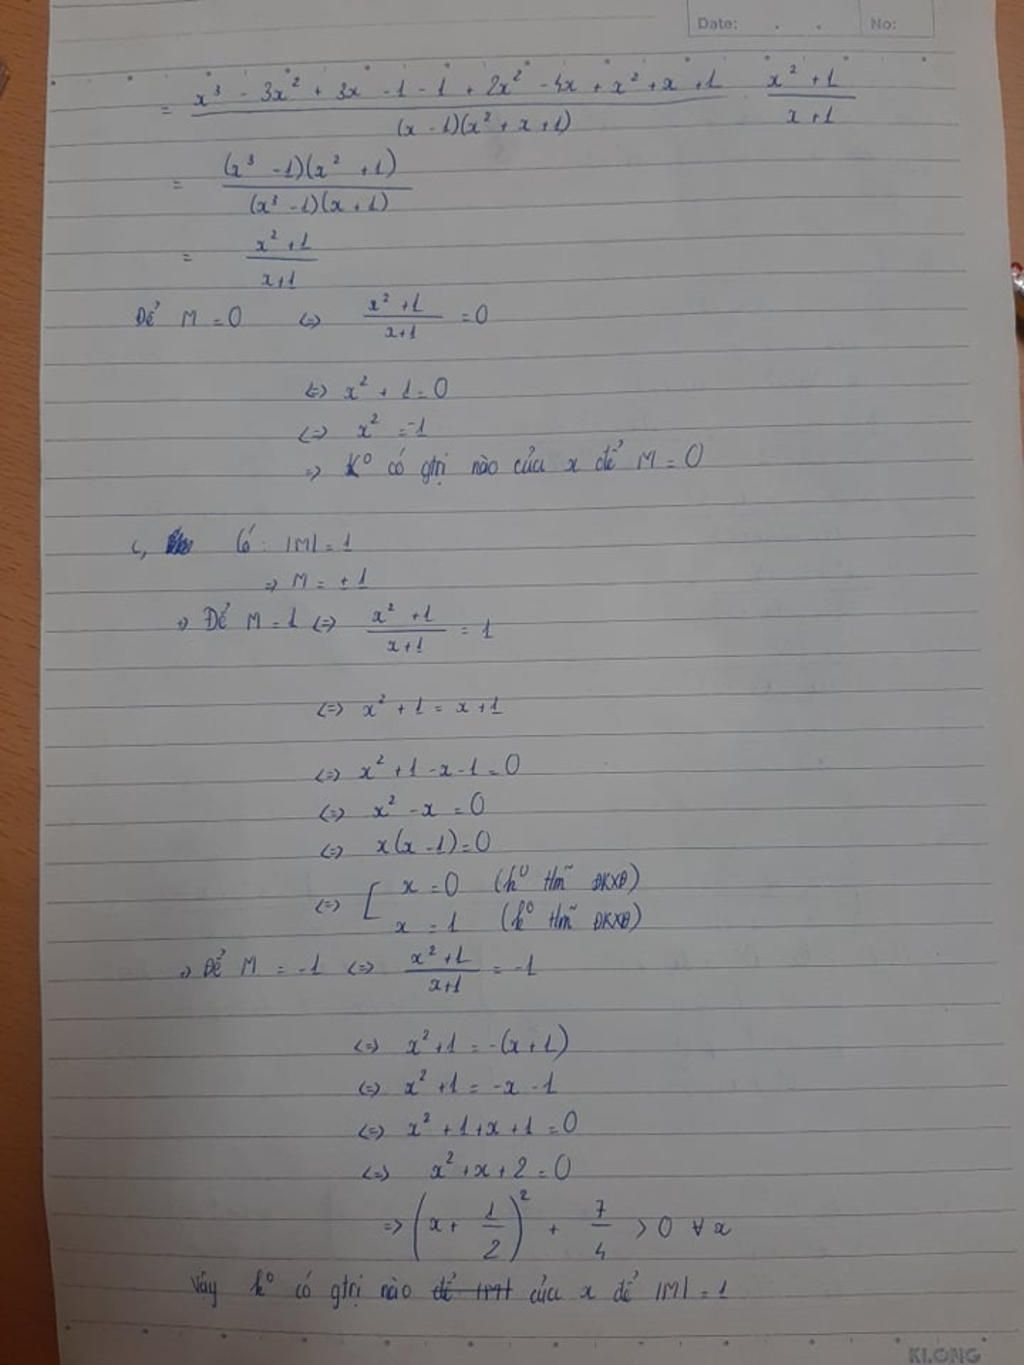 Date: . . No:
= \frac{x³ - 3x² + 3x - 1 - 1 + 2x² - 4x + x² + x + 1}{(x - 1)(x² + x + 1)} \frac{x² + 1}{x + 1}
= \frac{(x³ - 1)(x² + 1)}{(x³ - 1)(x + 1)}
= \frac{x² + 1}{x + 1}
Để M = 0 <=> \frac{x² + 1}{x + 1} = 0
<=> x² + 1 = 0
<=> x² = -1
=> K⁰ có gtrị nào của x để M = 0
c, Có : |M| = 1
=> M = ± 1
+) Để M = 1 <=> \frac{x² + 1}{x + 1} = 1
<=> x² + 1 = x + 1
<=> x² + 1 - x - 1 = 0
<=> x² - x = 0
<=> x(x - 1) = 0
<=> [ x = 0 (k⁰ t/mãn ĐKXĐ)
x = 1 (k⁰ t/mãn ĐKXĐ)
+) Để M = -1 <=> \frac{x² + 1}{x + 1} = -1
<=> x² + 1 = -(x + 1)
<=> x² + 1 = -x - 1
<=> x² + 1 + x + 1 = 0
<=> x² + x + 2 = 0
=> (x + \frac{1}{2})² + \frac{7}{4} > 0 ∀ x
Vậy k⁰ có gtrị nào để |M| của x để |M| = 1
KLONG